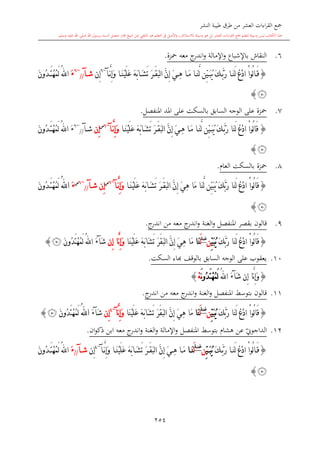 جمع القراءات العشر من طرق طيبة النشر
٦. النقاش بالإشباع والإمالة واندرج معه حمزة.
﴿ قَالُوا۟ ٱدْعُ لَنَا رَبَّكَ يُبَيِّن لَّنَا مَا هِيَ إِنَّ ٱلْبَقَرَ تَشَٰبَهَ عَلَيْنَا وَإِنَّآ إِن شَآءَ ٱللَّهُ لَمُهْتَدُونَ
﴾
٧. حمزة على الوجه السابق بالسكت على المد المنفصل.
﴿ قَالُوا۟ ٱدْعُ لَنَا رَبَّكَ يُبَيِّن لَّنَا مَا هِيَ إِنَّ ٱلْبَقَرَ تَشَٰبَهَ عَلَيْنَا وَإِنَّآ إِن شَآءَ ٱللَّهُ لَمُهْتَدُونَ
﴾
٨. حمزة بالسكت العام.
﴿ قَالُوا۟ ٱدْعُ لَنَا رَبَّكَ يُبَيِّن لَّنَا مَا هِيَ إِنَّ ٱلْبَقَرَ تَشَٰبَهَ عَلَيْنَا وَإِنَّآ إِن شَآءَ ٱللَّهُ لَمُهْتَدُونَ
﴾
٩. قالون بقصر المنفصل والغنة واندرج معه من اندرج.
﴿ قَالُوا۟ ٱدْعُ لَنَا رَبَّكَ يُبَيِّن لَّنَا مَا هِيَ إِنَّ ٱلْبَقَرَ تَشَٰبَهَ عَلَيْنَا وَإِنَّآ إِن شَآءَ ٱللَّهُ لَمُهْتَدُونَ ﴾
١٠. يعقوب على الوجه السابق بالوقف بهاء السكت.
﴿ وَإِنَّآ إِن شَآءَ ٱللَّهُ لَمُهْتَدُونَهْ ﴾
١١. قالون بتوسط المنفصل والغنة واندرج معه من اندرج.
﴿ قَالُوا۟ ٱدْعُ لَنَا رَبَّكَ يُبَيِّن لَّنَا مَا هِيَ إِنَّ ٱلْبَقَرَ تَشَٰبَهَ عَلَيْنَا وَإِنَّآ إِن شَآءَ ٱللَّهُ لَمُهْتَدُونَ ﴾
١٢. الداجوني عن هشام بتوسط المنفصل والإمالة والغنة واندرج معه ابن ذكوان.
﴿ قَالُوا۟ ٱدْعُ لَنَا رَبَّكَ يُبَيِّن لَّنَا مَا هِيَ إِنَّ ٱلْبَقَرَ تَشَٰبَهَ عَلَيْنَا وَإِنَّآ إِن شَآءَ ٱللَّهُ لَمُهْتَدُونَ
﴾
٢٥٤